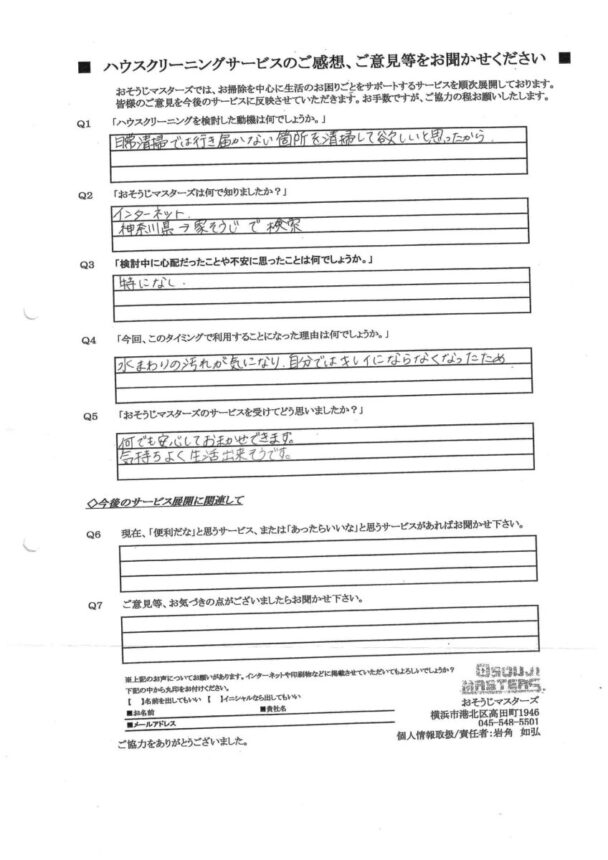 ■ ハウスクリーニングサービスのご感想、ご意見等をお聞かせください ■
おそうじマスターズでは、お掃除を中心に生活のお困りごとをサポートするサービスを順次展開しております。
皆様のご意見を今後のサービスに反映させていただきます。お手数ですが、ご協力の程お願いしたします。
Q1 「ハウスクリーニングを検討した動機は何でしょうか。」
日常清掃では行き届かない箇所を清掃して欲しいと思ったから.
Q2 「おそうじマスターズは何で知りましたか？」
インターネット.
神奈川県→家そうじで検索
Q3 「検討中に心配だったことや不安に思ったことは何でしょうか。」
特になし.
Q4 「今回、このタイミングで利用することになった理由は何でしょうか。」
水まわりの汚れが気になり.自分ではキレイにならなくなったため
Q5 「おそうじマスターズのサービスを受けてどう思いましたか？」
何でも安心しておまかせできます。
気持ちよく生活出来そうです。
◇今後のサービス展開に関連して
Q6 現在、「便利だな」と思うサービス、または「あったらいいな」と思うサービスがあればお聞かせ下さい。
Q7 ご意見等、お気づきの点がございましたらお聞かせ下さい。
※上記のお声についてお願いがあります。インターネットや印刷物などに掲載させていただいてもよろしいでしょうか？
下記の中から丸印をお付けください。
【 】名前を出してもいい 【 】イニシャルなら出してもいい
■お名前 ■貴社名
■メールアドレス
ご協力をありがとうございました。
OSOUJI
MASTERS.
おそうじマスターズ
横浜市港北区高田町1946
045-548-5501
個人情報取扱/責任者：岩角 如弘